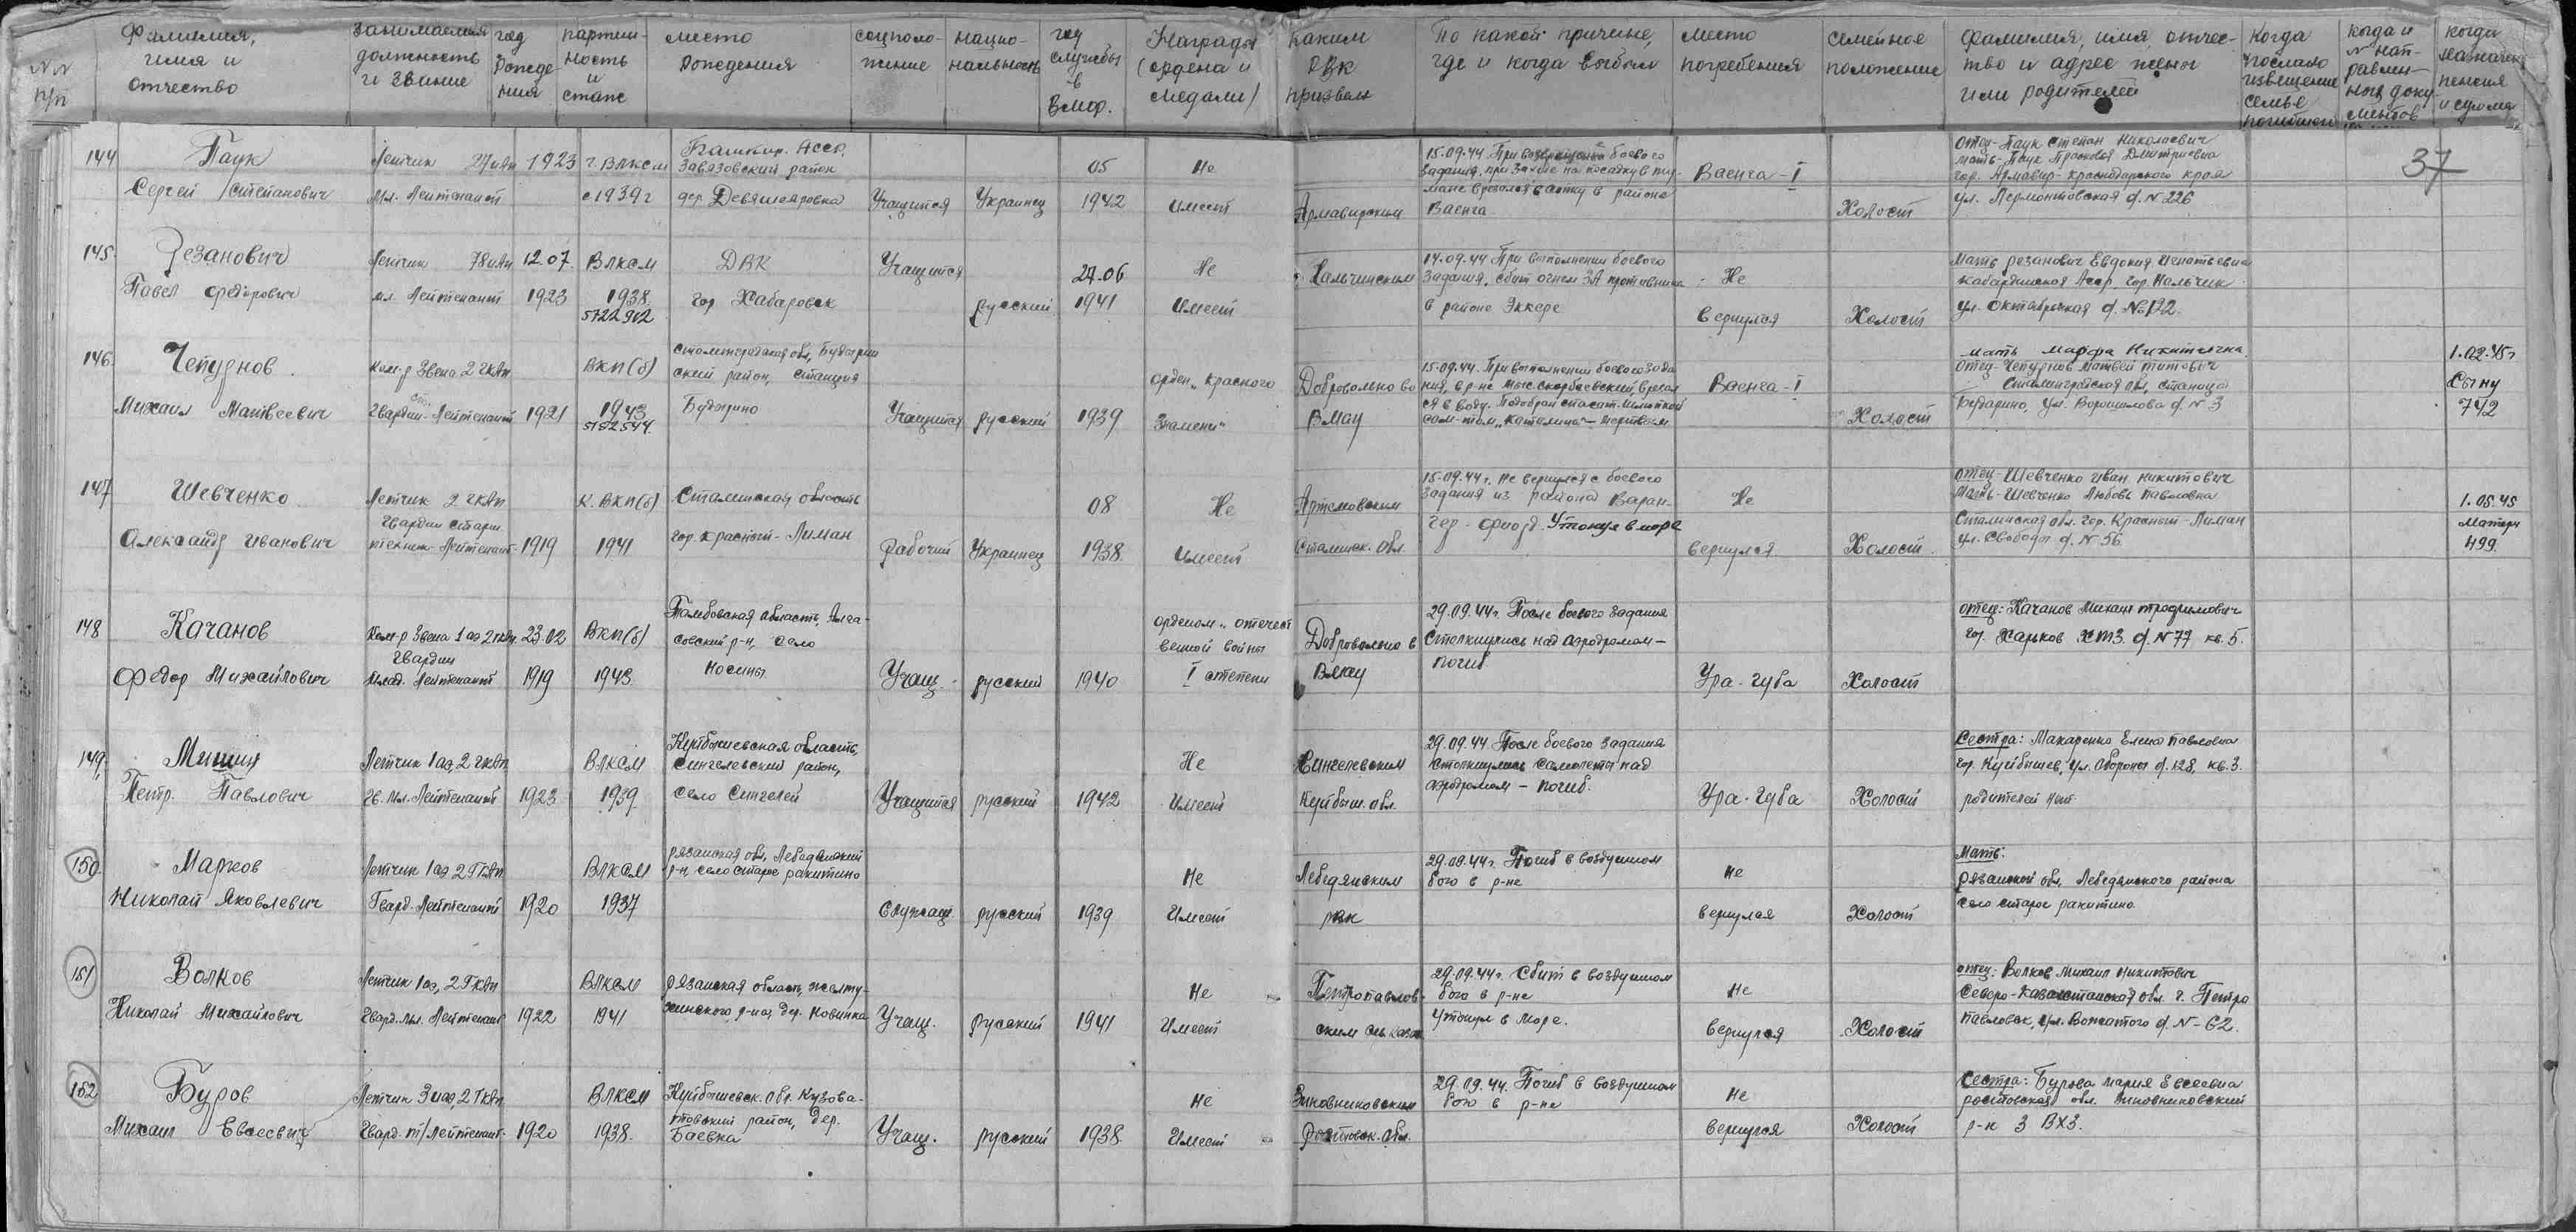 NN п/п
Фамилия, имя и отчество
Занимаемая должность и звание
год рождения
партийность и стаж
место рождения
соцположение
национальность
год службы в ВМФ.
Награды (ордена и медали)
Каким РВК призван
По какой причине, где и когда выбыл
место погребения
Семейное положение
Фамилия, имя, отчество и адрес жены или родителей
Когда послано извещение семье погибшего
когда и № направленных документов
когда назначена пенсия и сумма
37
144
Паук
Сергей Степанович
Летчик 27 иАп
мл. Лейтенант
1923 г.
ВЛКСМ
с 1939 г
Башкир. АССР.
Завязовский район
дер. Девятеяровка
Учащийся
Украинец
05
1942
Не
имеет
Армавирским
15.09.44 При возвращении боевого
задания, при заходе на посадку в ту-
мане врезался в сопку в районе
Ваенга.
Ваенга-I
Холост
Отец-Паук Степан Николаевич
мать-Паук Прасковья Дмитриевна
гор. Армавир-Краснодарского края
ул. Лермонтовская д. N 226
145.
Резанович
Павел Федорович
Летчик 78 иАп
мл. Лейтенант
12.07.
1923
ВЛКСМ
1938.
5722902
ДВК
гор Хабаровск
Учащийся
русский
27.06
1941
Не
имеет
Нальчинским
14.09.44 При выполнении боевого
задания, сбит огнем ЗА противника
в районе Эккере
Не
вернулся
Холост
Мать Резанович Евдокия Игнатьевна
Кабардинская АССР, гор. Нальчик
ул. Октябрьская д. №122.
146.
Чепурнов
Михаил Матвеевич
Ком-р Звена 2 гкАп
Гвардии Ст. Лейтенант
1921
ВКП(б)
1943
5192544
Сталинградская обл, Будари
ский район, станция
Бударино
Учащийся
русский
1939
орден „Красного
Знамени"
Добровольно во
ВМАУ
15.09.44. При выполнении боевого зада
ния, в р-не мыс. Скорбеевский, врезал
ся в воду. Подобран спасат. шлюпкой
сам-том „Каталина" - мертвым
Ваенга-I
Холост
мать Марфа Никитична
отец-Чепурнов Матвей Титович
Сталинградская обл, станица
Бударино, ул. Ворошилова д. N 3
1.02.45г
Сыну
742
147
Шевченко
Александр Иванович
Летчик 2 гкАп
Гвардии старш.
техник-Лейтенант
1919
К. ВКП(б)
1941
Сталинская область
гор. Красный-Лиман
Рабочий
Украинец
08
1938.
Не
имеет
Артемовским
Сталинск. обл.
15.09.44г. Не вернулся с боевого
задания из района Варан-
гер-фиорд. Утонул в море
Не
вернулся
Холост.
отец-Шевченко Иван Никитович
Мать-Шевченко Любовь Павловна
Сталинская обл. гор. Красный-Лиман
ул. Свободы д. N 56
1.05.45
Матери
499.
148
Качанов
Федор Михайлович
Ком-р Звена 1 аэ 2 гкАп.
Гвардии
Млад. Лейтенант
23.02
1919
ВКП(б)
1943.
Тамбовская область, Алга-
совский р-н, село
Носины
Учащ.
русский
1940
орденом „отечест
венной войны
I степени
Добровольно в
ВМАУ
29.09.44г. После боевого задания
Столкнулись над аэродромом-
погиб
Ура-губа
Холост
отец: Качанов Михаил Трофимович
гор. Харьков ХТЗ д. N 77 кв. 5.
149.
Мишин
Петр. Павлович
Летчик 1 аэ, 2 гкАп
Гв. мл. Лейтенант
1923
ВЛКСМ
1939
Куйбышевская область,
Сингелевский район,
село Сингелей
Учащийся
русский
1942
Не
имеет
Сингелевским
Куйбыш. обл.
29.09.44 После боевого задания
столкнулись самолеты над
аэродромом - погиб.
Ура-губа
Холост
Сестра: Макаренко Елена Павловна
гор. Куйбышев, ул. Обороны д. 128, кв. 3.
родителей нет.
150.
Марков
Николай Яковлевич
Летчик 1 аэ, 2 ГкАп
Гвард. Лейтенант
1920
ВЛКСМ
1937
Рязанская обл, Лебедянский
р-н, село Старое ракитино
Служащ.
русский
1939
Не
Имеет
Лебедянским
рвк
29.09.44г. Погиб в воздушном
бою в р-не
Не
вернулся
Холост
Мать:
Рязанской обл, Лебедянского района
село Старое ракитино
151
Волков
Николай Михайлович
Летчик 1 аэ, 2 ГкАп
Гвард. мл. Лейтенант
1922
ВЛКСМ
1941
Рязанская область, желту-
хинского р-на, дер. Новинка
Учащ.
русский
1941
Не
Имеет
Петропавлов-
ским Св. Казах
29.09.44г. Сбит в воздушном
бою в р-не
Утонул в море.
Не
вернулся
Холост
отец: Волков Михаил Никитович
Северо-Казахстанской обл. г. Петро
павловск, ул. Вожатого д. N-62.
152
Буров
Михаил Евсеевич
Летчик 3 иаэ, 2 ГкАп
Гвард. т/лейтенант
1920
ВЛКСМ
1938.
Куйбышевск. обл. Кузова-
товский район, дер.
Баевка
Учащ.
русский
1938.
Не
Имеет
Зимовниковским
Ростовск. обл.
29.09.44. Погиб в воздушном
бою в р-не
Не
вернулся
Холост
Сестра: Бурова Мария Евсеевна
ростовской обл. Зимовниковский
р-н 3 ВХЗ.